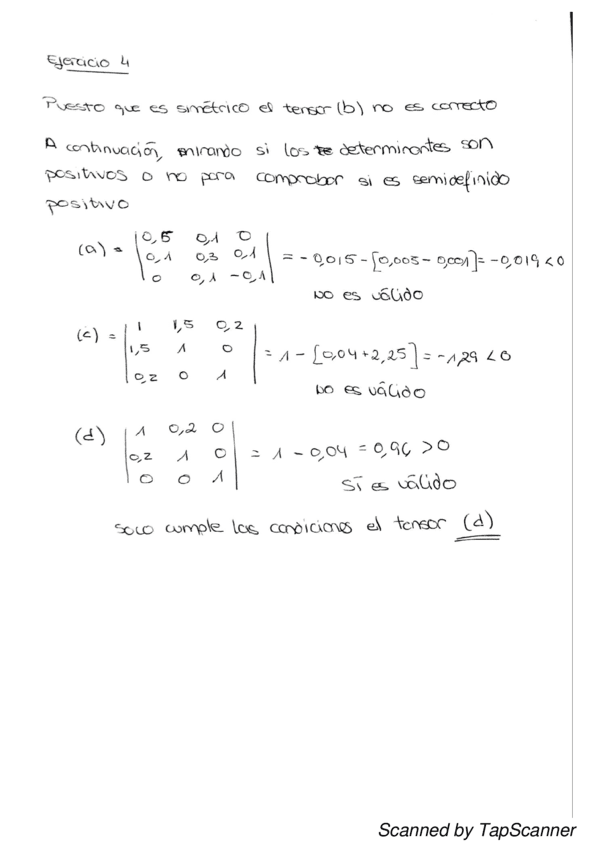 Ejercicio 4
Puesto que es simétrico el tensor (b) no es correcto
A continuación, mirando si los determinantes son
positivos o no para comprobar si es semidefinido
positivo
(a) = |0,5 0,1 0|
|0,1 0,3 0,1| = - 0,015 - [0,005 - 0,001] = -0,019 < 0
|0 0,1 -0,1|
NO es válido
(c) = |1 1,5 0,2|
|1,5 1 0| = 1 - [0,04 + 2,25] = -1,29 < 0
|0,2 0 1|
NO es válido
(d) |1 0,2 0|
|0,2 1 0| = 1 - 0,04 = 0,96 > 0
|0 0 1|
SÍ es válido
Solo cumple las condiciones el tensor (d)
Scanned by TapScanner